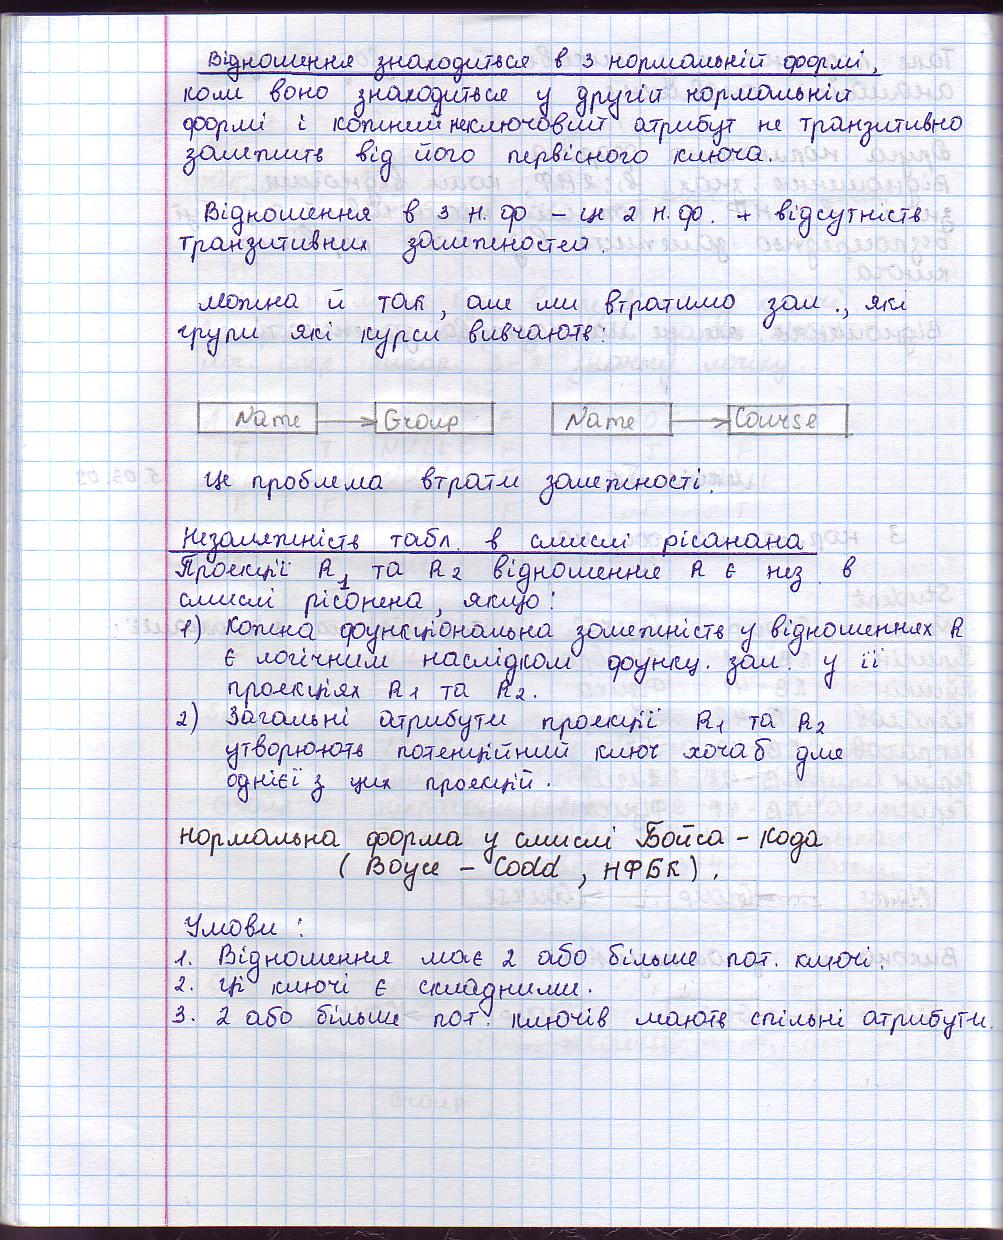 Відношення знаходиться в 3 нормальній формі,
коли воно знаходиться у другій нормальній
формі і кожний неключовий атрибут не транзитивно
залежить від його первісного ключа.
Відношення в 3 н.ф – це 2 н.ф. + відсутність
транзитивних залежностей.
Можна й так, але ми втратимо зал., які
групи які курси вивчають:
Name → Group Name → Course
Це проблема втрати залежності.
Незалежність табл. в смислі рісанана
Проекції R1 та R2 відношення R є нез. в
смислі рісонена, якщо:
1) Кожна функціональна залежність у відношеннях R
є логічним наслідком функц. зал. у її
проекціях R1 та R2.
2) Загальні атрибути проекції R1 та R2
утворюють потенційний ключ хочаб для
однієї з цих проекцій.
Нормальна форма у смислі Бойса – Кода
(Boyce – Codd, НФБК).
Умови:
1. Відношення має 2 або більше пот. ключі.
2. Ці ключі є складними.
3. 2 або більше пот. ключів мають спільні атрибути.